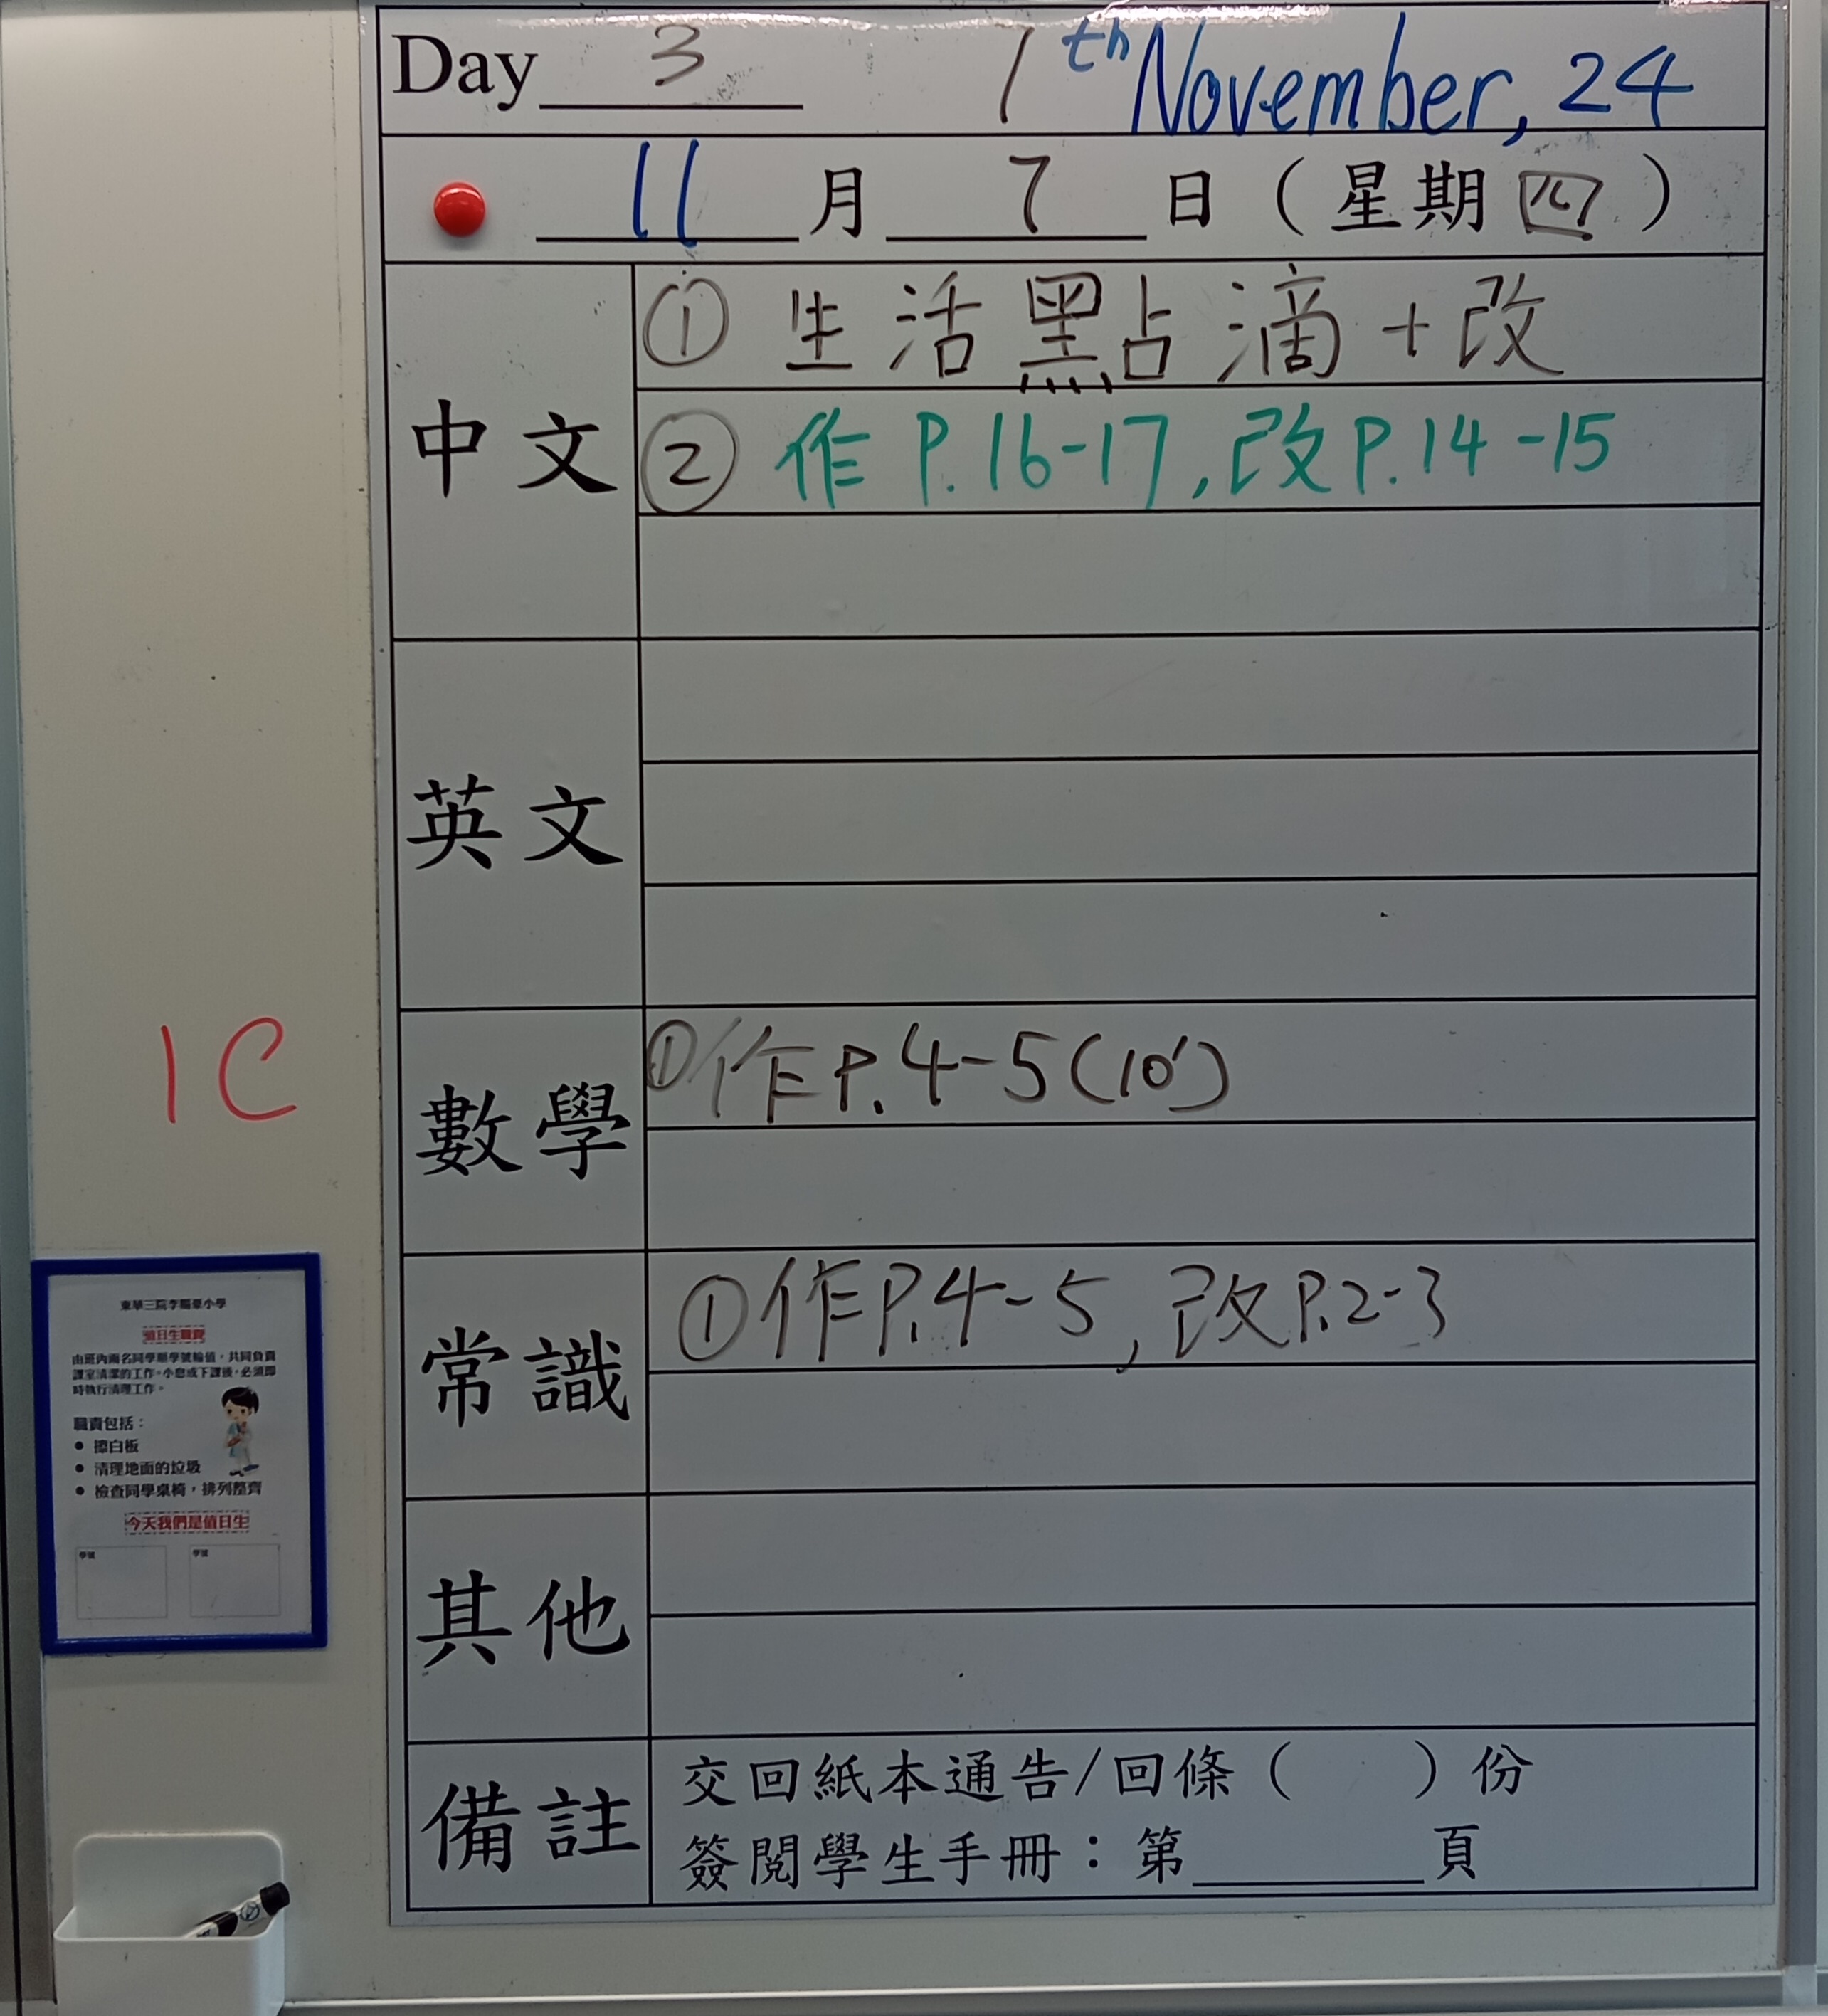 Day 3 1th November, 24
11月7日(星期四)
中文
① 生活點滴+改
② 作 P.16-17,改P.14-15
英文
數學
①作P.4-5(10')
常識
①作P.4-5,改P.2-3
其他
備註
交回紙本通告/回條( )份
簽閱學生手冊:第____頁
1C
值日生職責
由班內兩名同學順學號輪值,共同負責
課室清潔的工作。小息或下課後,必須即
時執行清理工作。
職責包括:
● 擦白板
● 清理地面的垃圾
● 檢查同學桌椅,排列整齊
今天我們是值日生
學號 學號